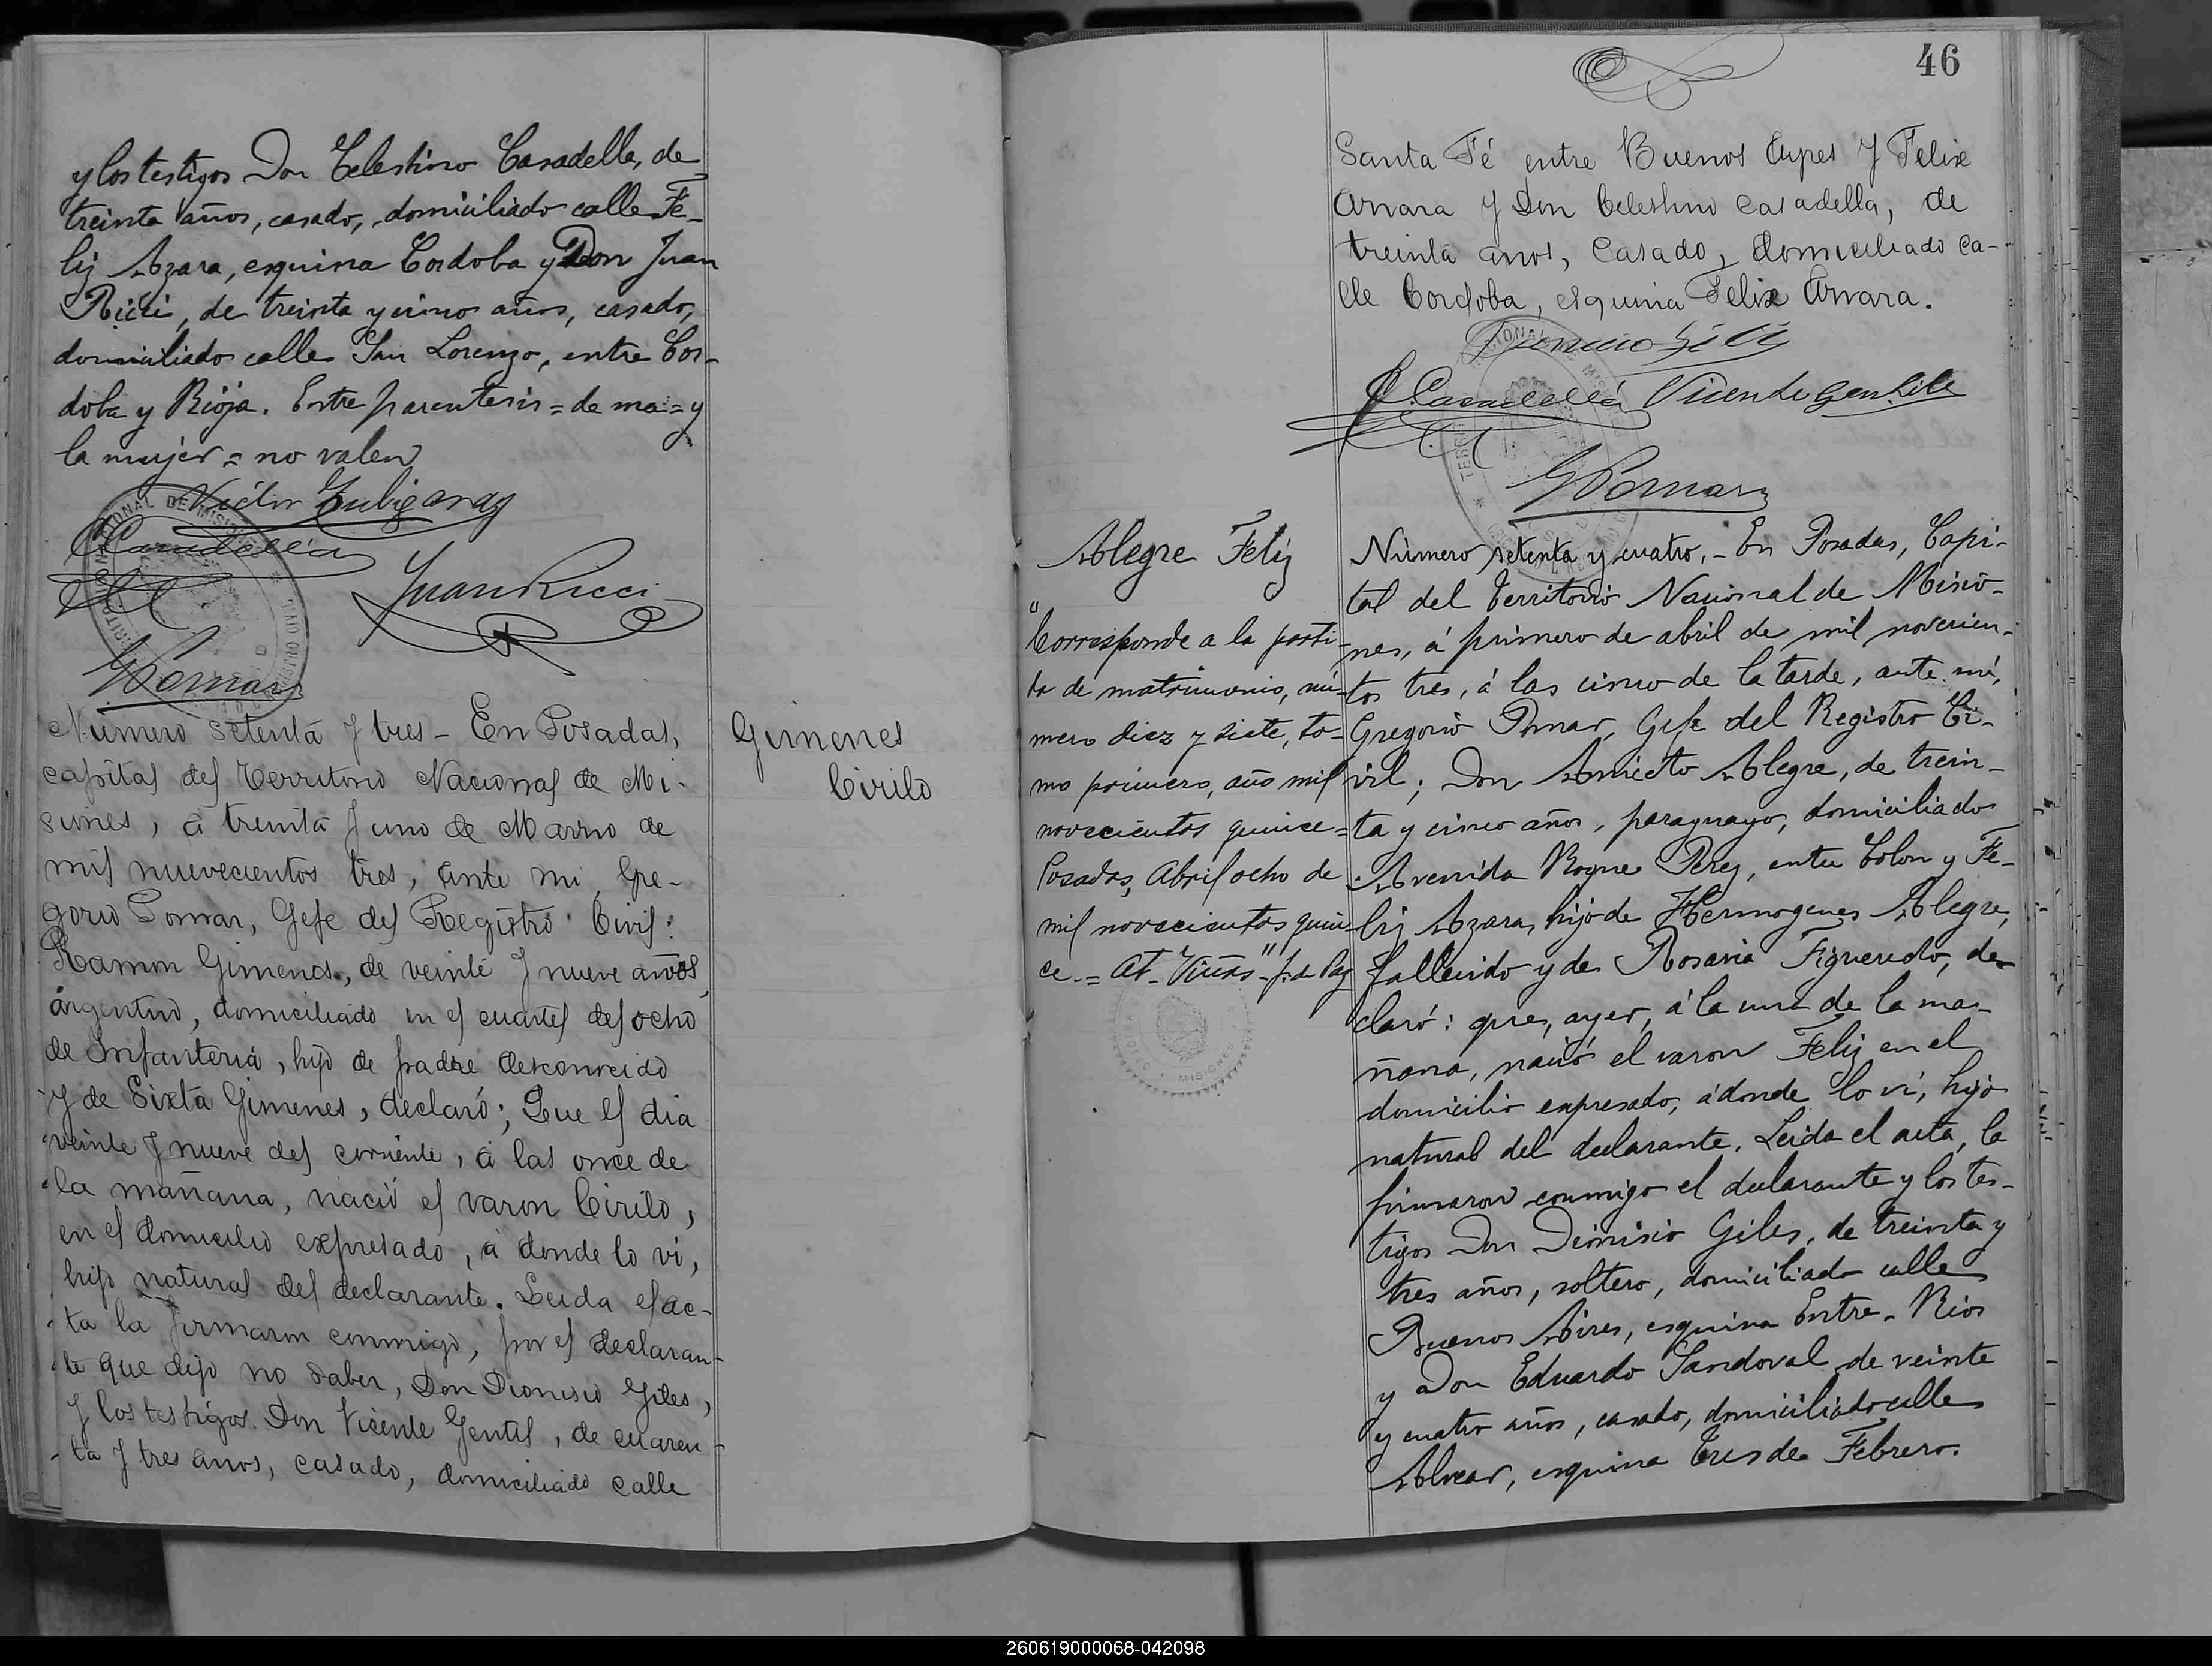 y los testigos Don Celestino Casadella, de
treinta años, casado, domiciliado calle Fe-
liz Azara, esquina Cordoba y Don Juan
Ricci, de treinta y cinco años, casado,
domiciliado calle San Lorenzo, entre Cor-
doba y Rioja. Entre parentesis = de ma = y
la mujer = no valen
Victor Zubizaray
C Casadella
Juan Ricci
G Pomar
Número setenta y tres - En Posadas,
capital del Territorio Nacional de Mi-
siones, á treinta y uno de Marzo de
mil nuevecientos tres, ante mi, Gre-
gorio Pomar, Gefe del Registro Civil:
Ramon Gimenes, de veinte y nueve años,
argentino, domiciliado en el cuartel del ocho
de Infanteria, hijo de padre desconocido
y de Sixta Gimenes, declaró; Que el dia
veinte y nueve del corriente, á las once de
la mañana, nació el varon Cirilo,
en el domicilio expresado, á donde lo vi,
hijo natural del declarante. Leida el ac-
ta la firmaron conmigo, por el declaran-
te que dijo no saber, Don Dionisio Giles,
y los testigos Don Vicente Gentil, de cuaren-
ta y tres años, casado, domiciliado calle
Gimenes
Cirilo
46
Santa Fé entre Buenos Ayres y Felix
Azzara y Don Celestino Casadella, de
treinta años, Casado, domiciliado ca-
lle Cordoba, esquina Felix Azzara.
Dionisio Giles
C. Casadella Vicente Gentile
G Pomar
Alegre Feliz
"Corresponde a la parti-
da de matrimonio, nú-
mero diez y siete, to-
mo primero, año mil
novecientos quince =
Posadas, Abril ocho de
mil novecientos quin-
ce. = At. Viñas"
Número setenta y cuatro. - En Posadas, Capi-
tal del Territorio Nacional de Misio-
nes, á primero de abril de mil novecien-
tos tres, á las cinco de la tarde, ante mí,
Gregorio Pomar, Gefe del Registro Ci-
vil; Don Aniceto Alegre, de trein-
ta y cinco años, paraguayo, domiciliado
Avenida Roque Perez, entre Colon y Fe-
liz Azara, hijo de Hermogenes Alegre,
fallecido y de Rosario Figueredo, de-
claró: que, ayer, á la una de la ma-
ñana, nació el varon Feliz en el
domicilio expresado, á donde lo ví, hijo
natural del declarante. Leida el acta, la
firmaron conmigo el declarante y los tes-
tigos Don Dionisio Giles, de treinta y
tres años, soltero, domiciliado calle
Buenos Aires, esquina Entre-Rios
y Don Eduardo Sandoval, de veinte
y cuatro años, casado, domiciliado calle
Alvear, esquina Tres de Febrero.
260619000068-042098